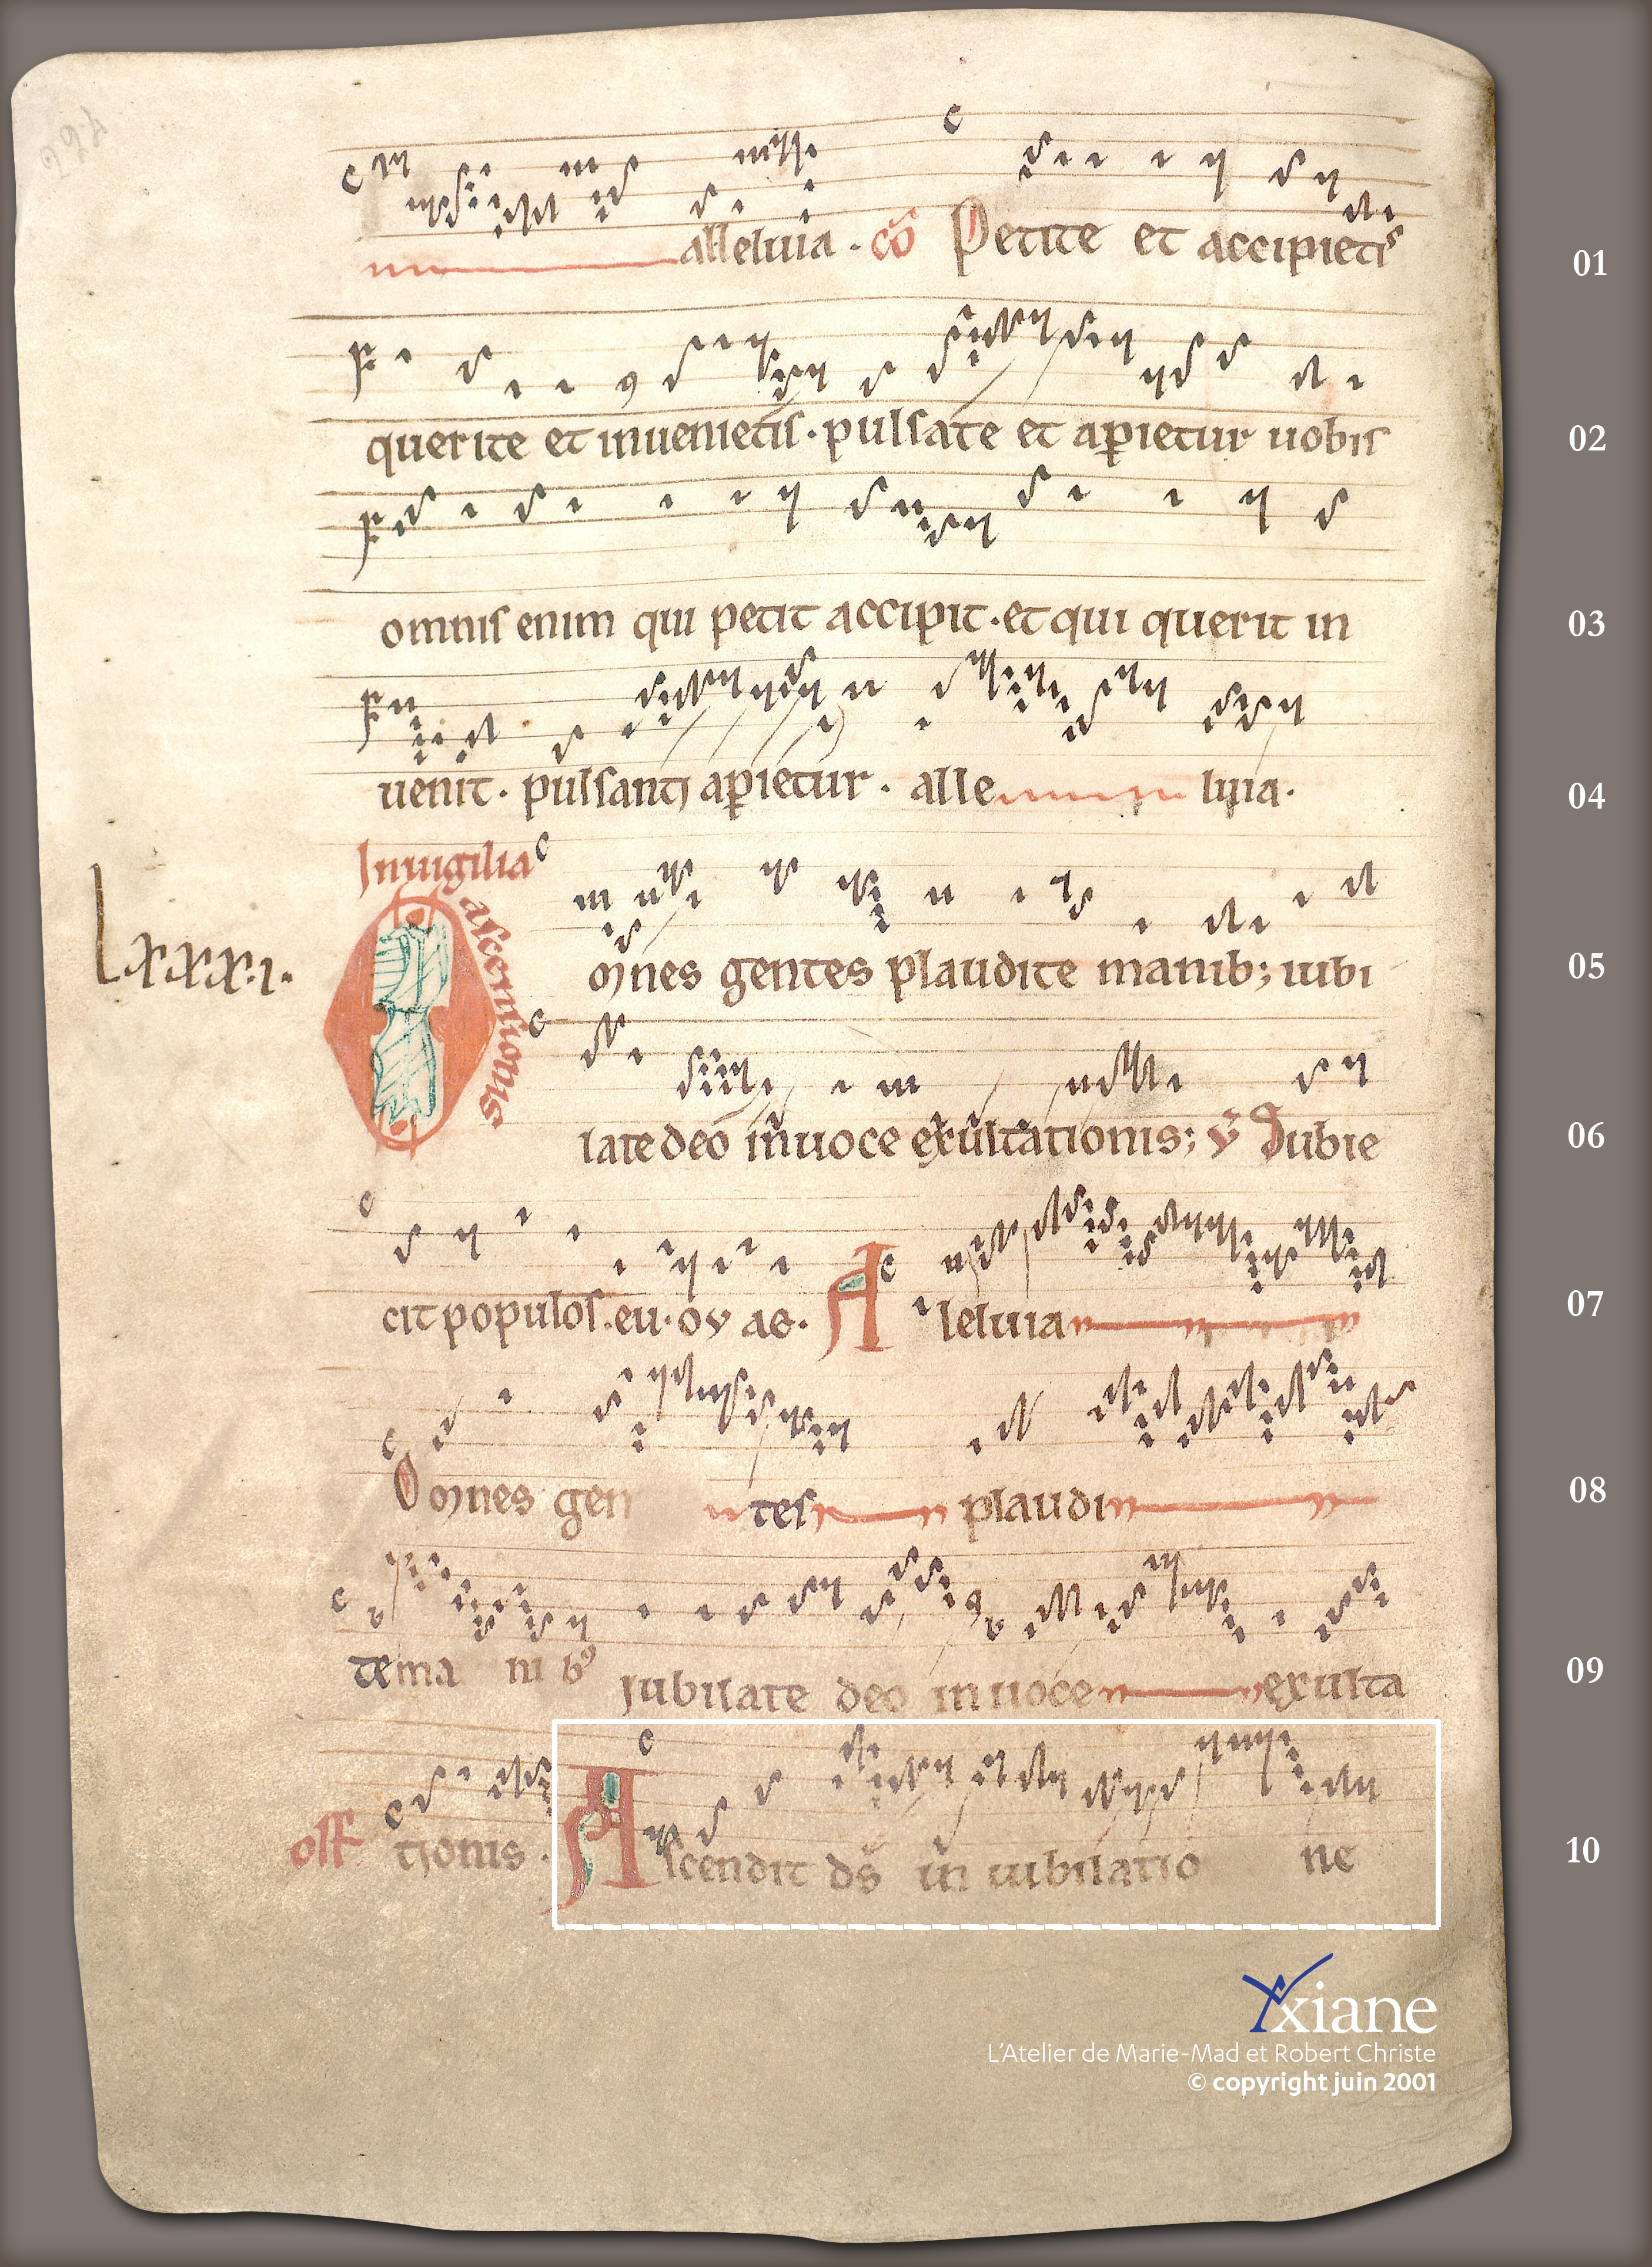 alleluia · cō Petite et accipietis 01
querite et inuenietis · pulsate et apietur uobis 02
omnis enim qui petit accipit · et qui querit in 03
uenit · pulsanti apietur · alle luia · 04
In uigilia
ascensionis
Lxxx.i.
Omnes gentes plaudite manib; iubi 05
late deo in uoce exultationis; ℣ Subie 06
cit populos. eu · ov ae · Alleluia 07
Omnes gen tes plaudi 08
te ma nib9 Iubilate deo in uoce exulta 09
off tionis · Ascendit ds̄ in iubilatio ne 10
Yxiane
L'Atelier de Marie-Mad et Robert Christe
© copyright juin 2001